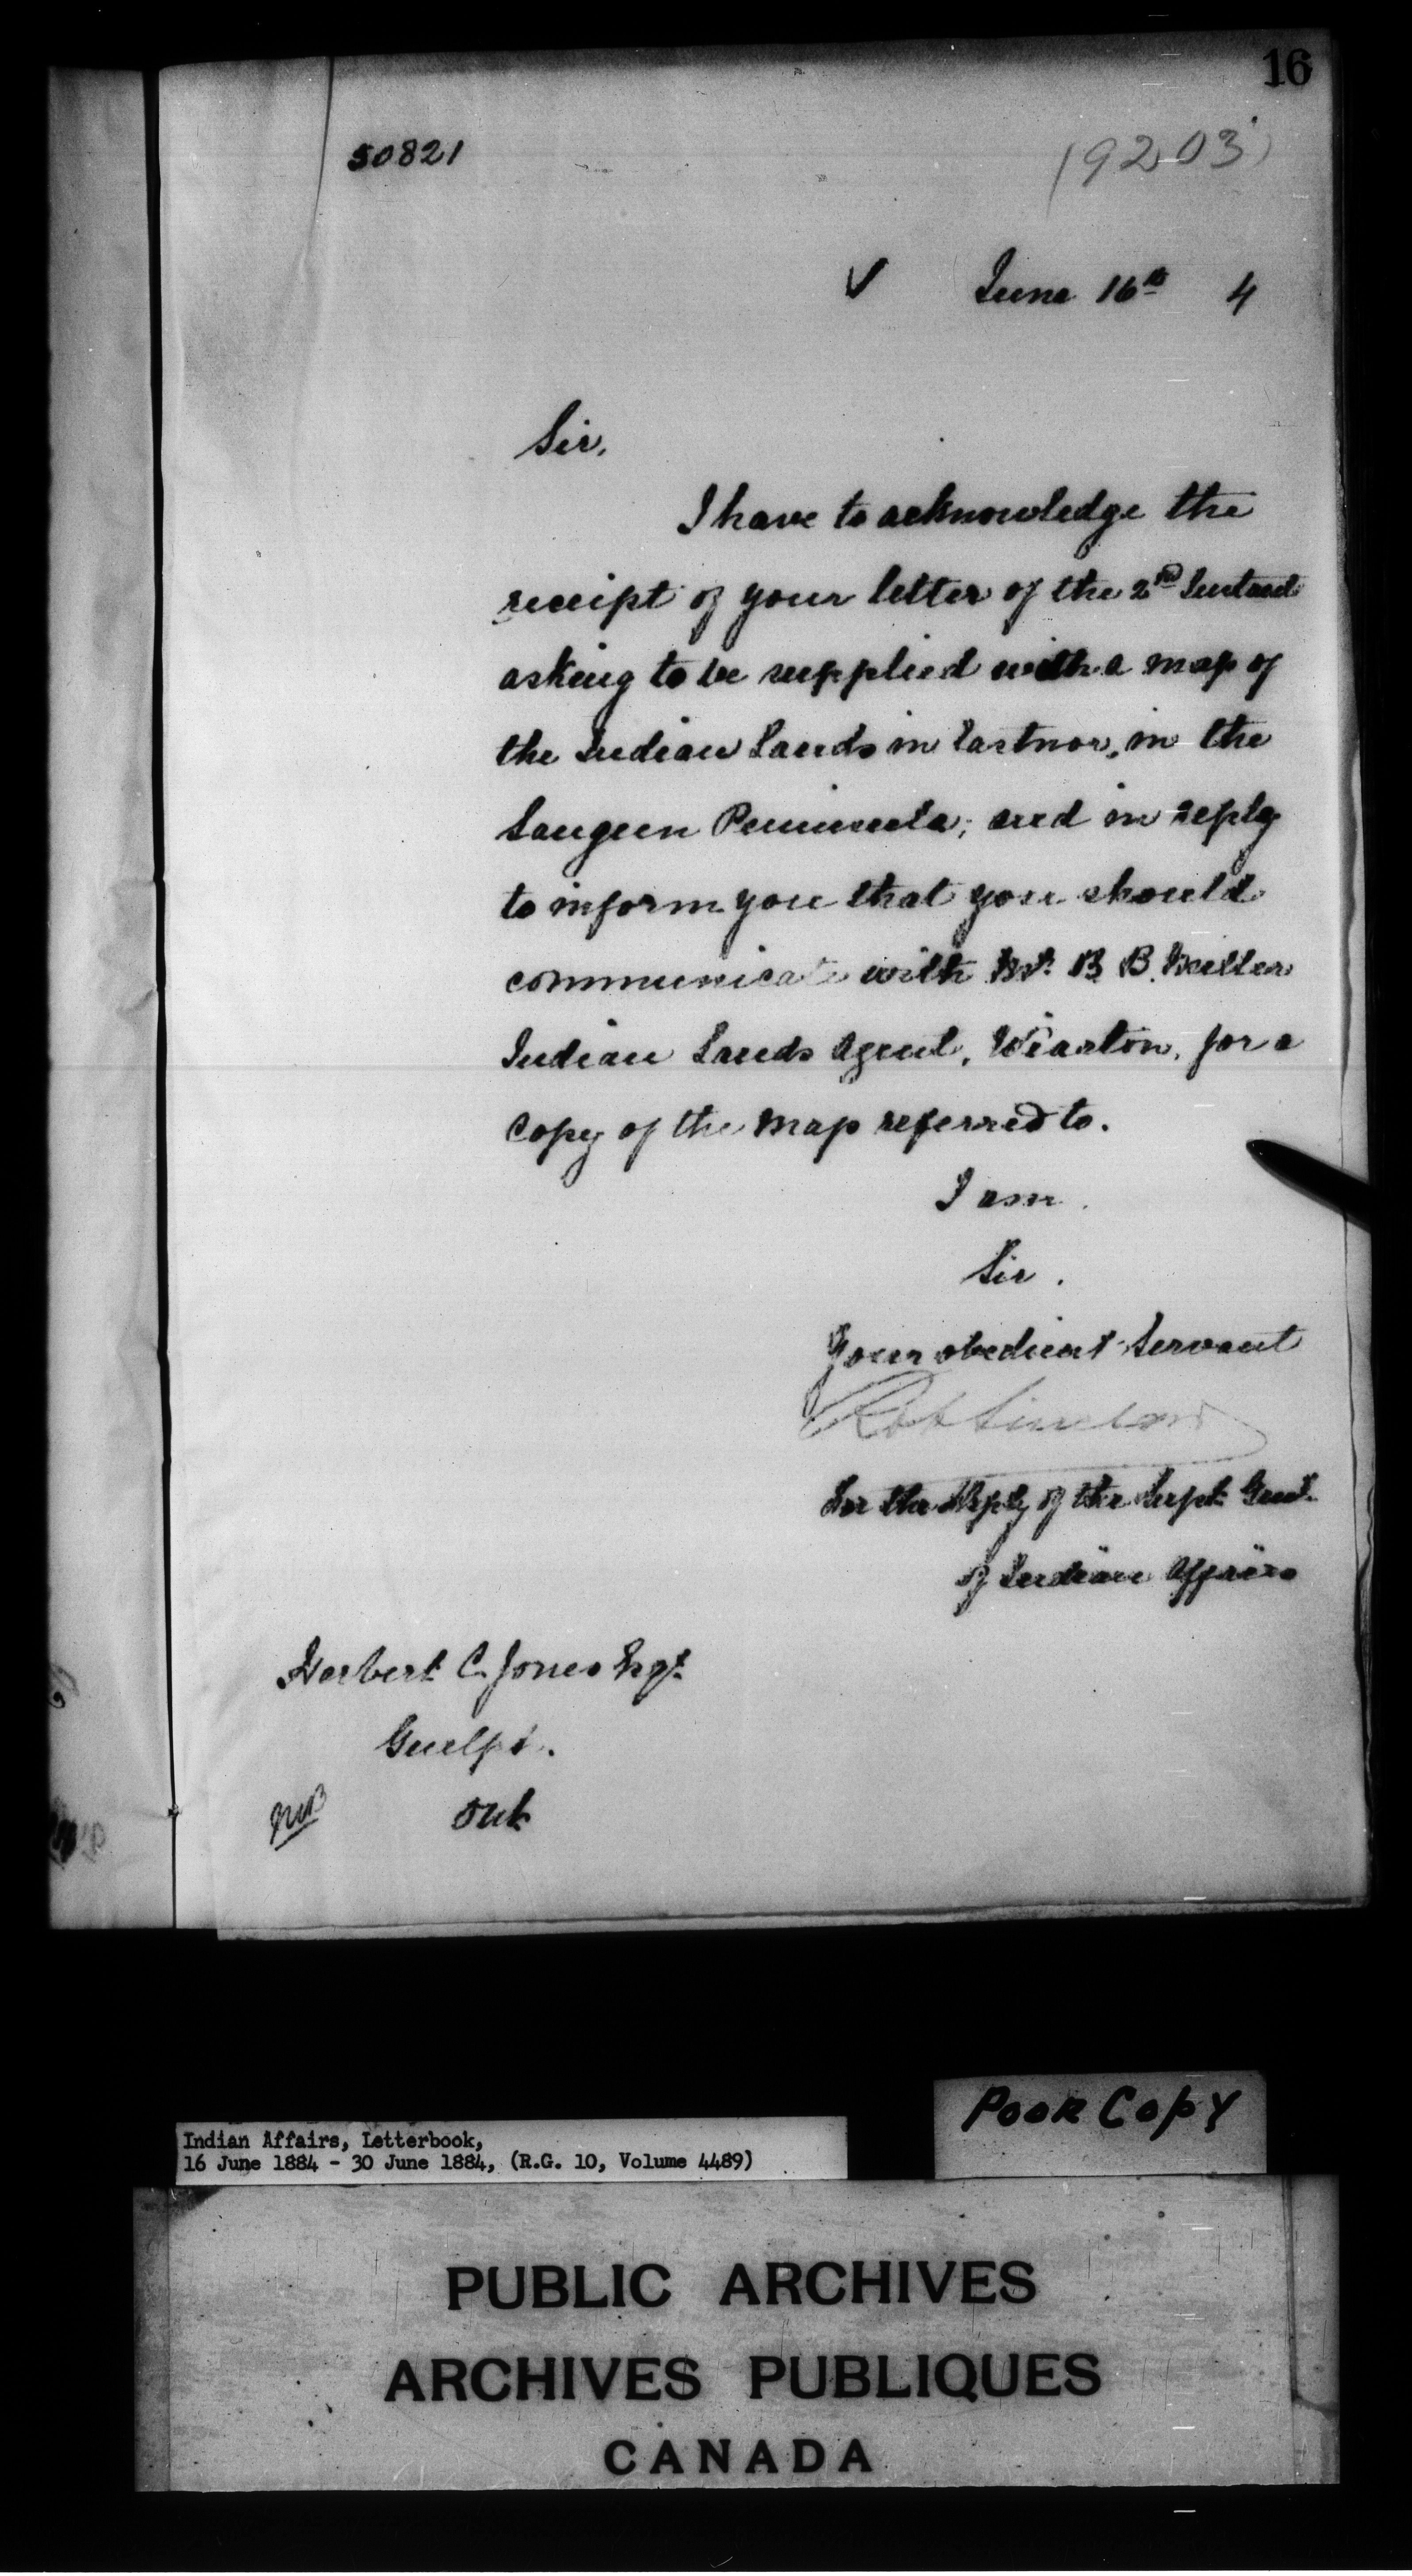 16
50821
(9203)
✓ June 16th 4
Sir,
I have to acknowledge the
receipt of your letter of the 2nd Instant
asking to be supplied with a map of
the Indian Lands in Eastnor, in the
Saugeen Peninsula; and in reply
to inform you that you should
communicate with Mr. B B. Miller
Indian Lands Agent, Wiarton, for a
copy of the map referred to.
I am.
Sir.
Your obedient Servant
Robt Sinclair
For the Depty of the Supt. Genl.
of Indian Affairs
Herbert C. Jones Esqr.
Guelph.
Ont
Indian Affairs, Letterbook,
16 June 1884 - 30 June 1884, (R.G. 10, Volume 4489)
Poor Copy
PUBLIC ARCHIVES
ARCHIVES PUBLIQUES
CANADA